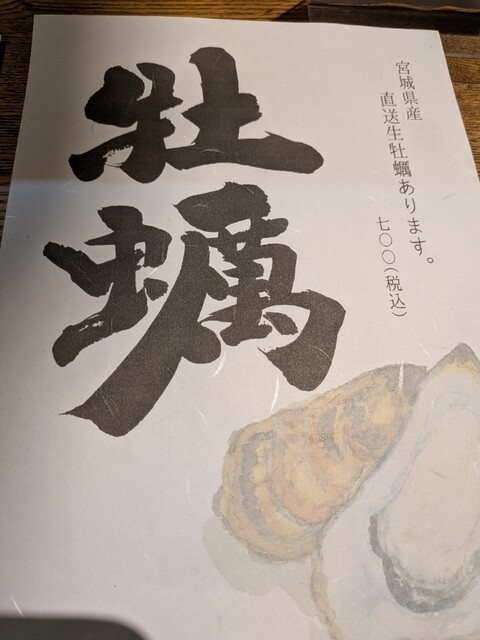 牡蠣
宮城県産
直送生牡蠣あります。
七〇〇(税込)